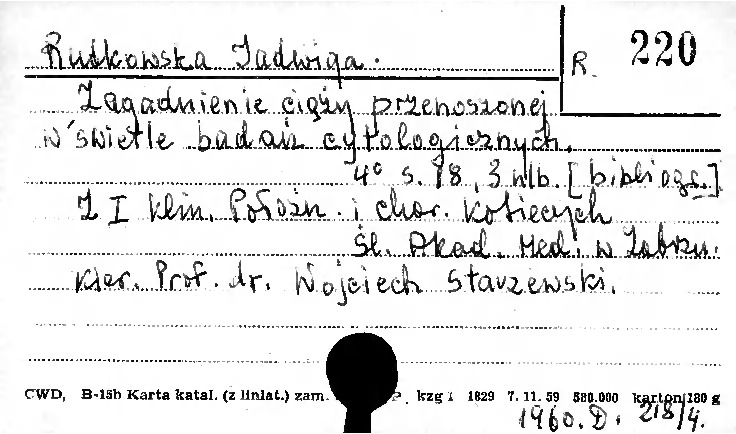 Rutkowska Jadwiga.
R. 220
Zagadnienie ciąży przenoszonej
w świetle badań cytologicznych.
4° s. 78, 3 nlb. [bibliogr.]
Z I Klin. Położn. i chor. Kobiecych
Śl. Akad. Med. w Zabrzu.
Kier. Prof. dr. Wojciech Starzewski.
CWD, B-15b Karta katal. (z liniat.) zam. P. kzg 1 1829 7. 11. 59 580.000 karton 180 g
1960. D. 218/4.